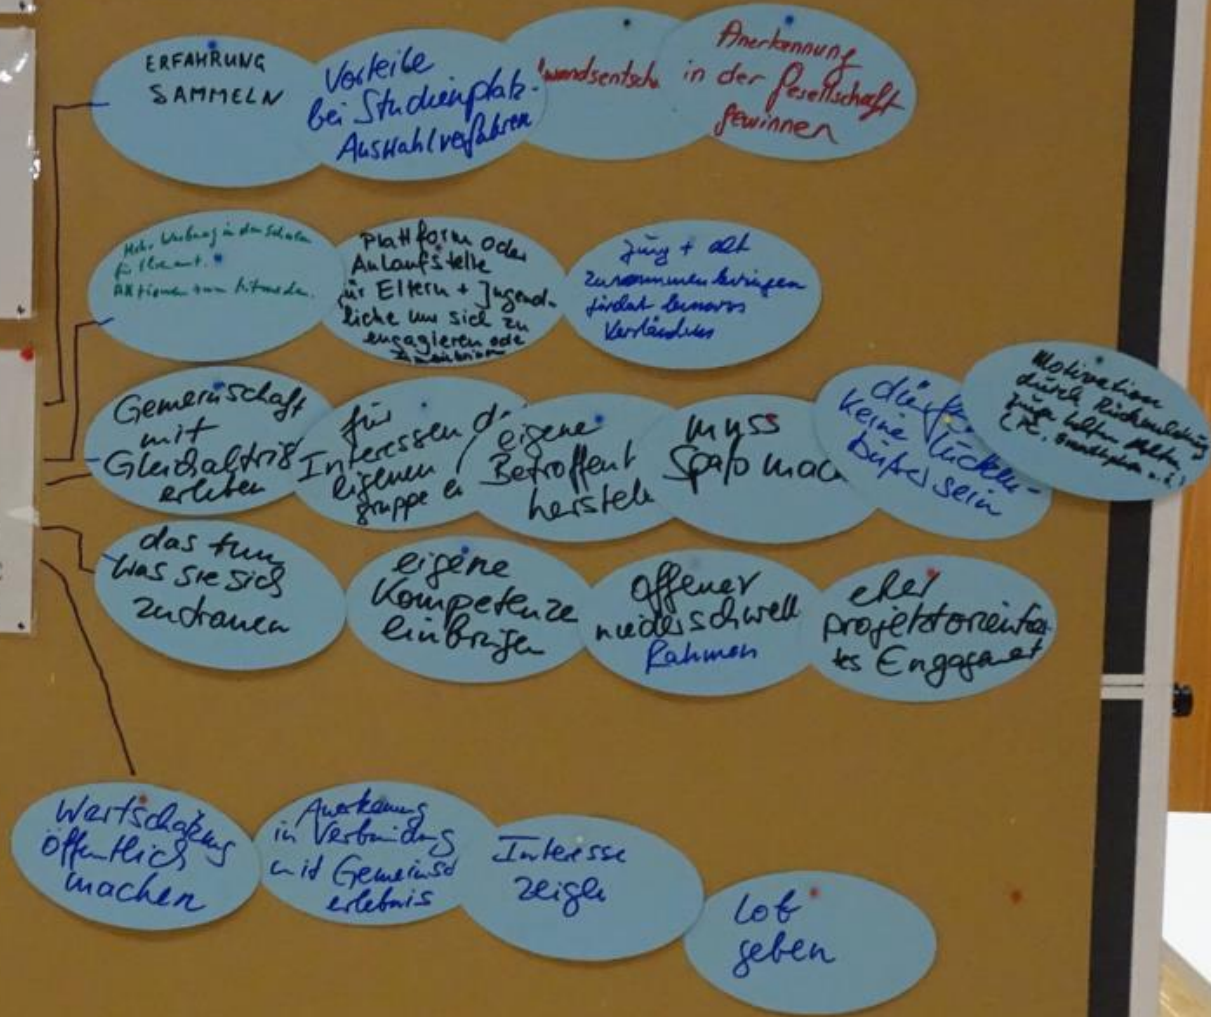 ERFAHRUNG
SAMMELN
Vorteile
bei Studienplatz-
Auswahlverfahren
wandsentsch
Anerkennung
in der Gesellschaft
gewinnen
Mehr Werbung in den Schulen
für Ehrenamt.
Aktionen zum
Plattform oder
Anlaufstelle
für Eltern + Jugend-
liche um sich zu
engagieren ode
Jung + alt
zusammenbringen
fördert
Verständnis
Gemeinschaft
mit
Gleichaltrig
erleben
für
Interessen d
eigenen
gruppe e
eigene
Betroffenh
herstell
muss
Spaß mac
keine Lücken-
büßer sein
Motivation
durch
das tun
was sie sich
zutrauen
eigene
Kompetenze
einbringen
offener
niederschwell
Rahmen
eher
projektorientier
tes Engagement
Wertschätzung
öffentlich
machen
Anerkennung
in Verbindung
mit Gemeinsch
erlebnis
Interesse
zeigen
Lob
geben